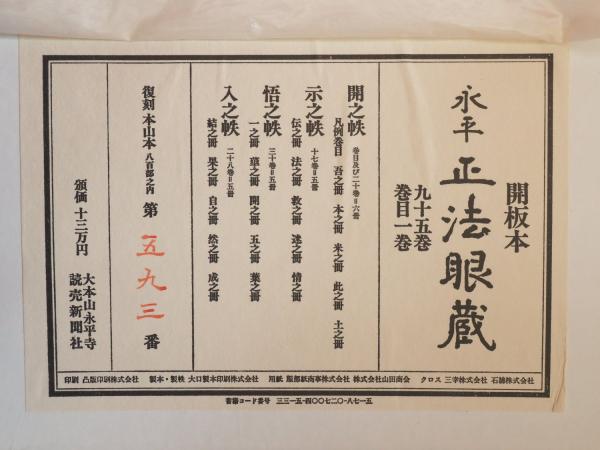 開板本
永平 正法眼蔵
九十五巻
巻目一巻
開之帙 巻目及び二十巻=六冊
凡例巻目 吾之冊 本之冊 来之冊 此之冊 土之冊
示之帙 十七巻=五冊
伝之冊 法之冊 救之冊 迷之冊 情之冊
悟之帙 三十巻=五冊
一之冊 華之冊 開之冊 五之冊 葉之冊
入之帙 二十八巻=五冊
結之冊 果之冊 自之冊 然之冊 成之冊
復刻 本山本 八百部之内 第 五九三 番
頒価 十三万円
大本山永平寺
読売新聞社
印刷 凸版印刷株式会社 製本・製帙 大口製本印刷株式会社 用紙 服部紙商事株式会社 株式会社山田商会 クロス 三幸株式会社 石綿株式会社
書籍コード番号 三三一五-四〇〇七二〇-八七一五